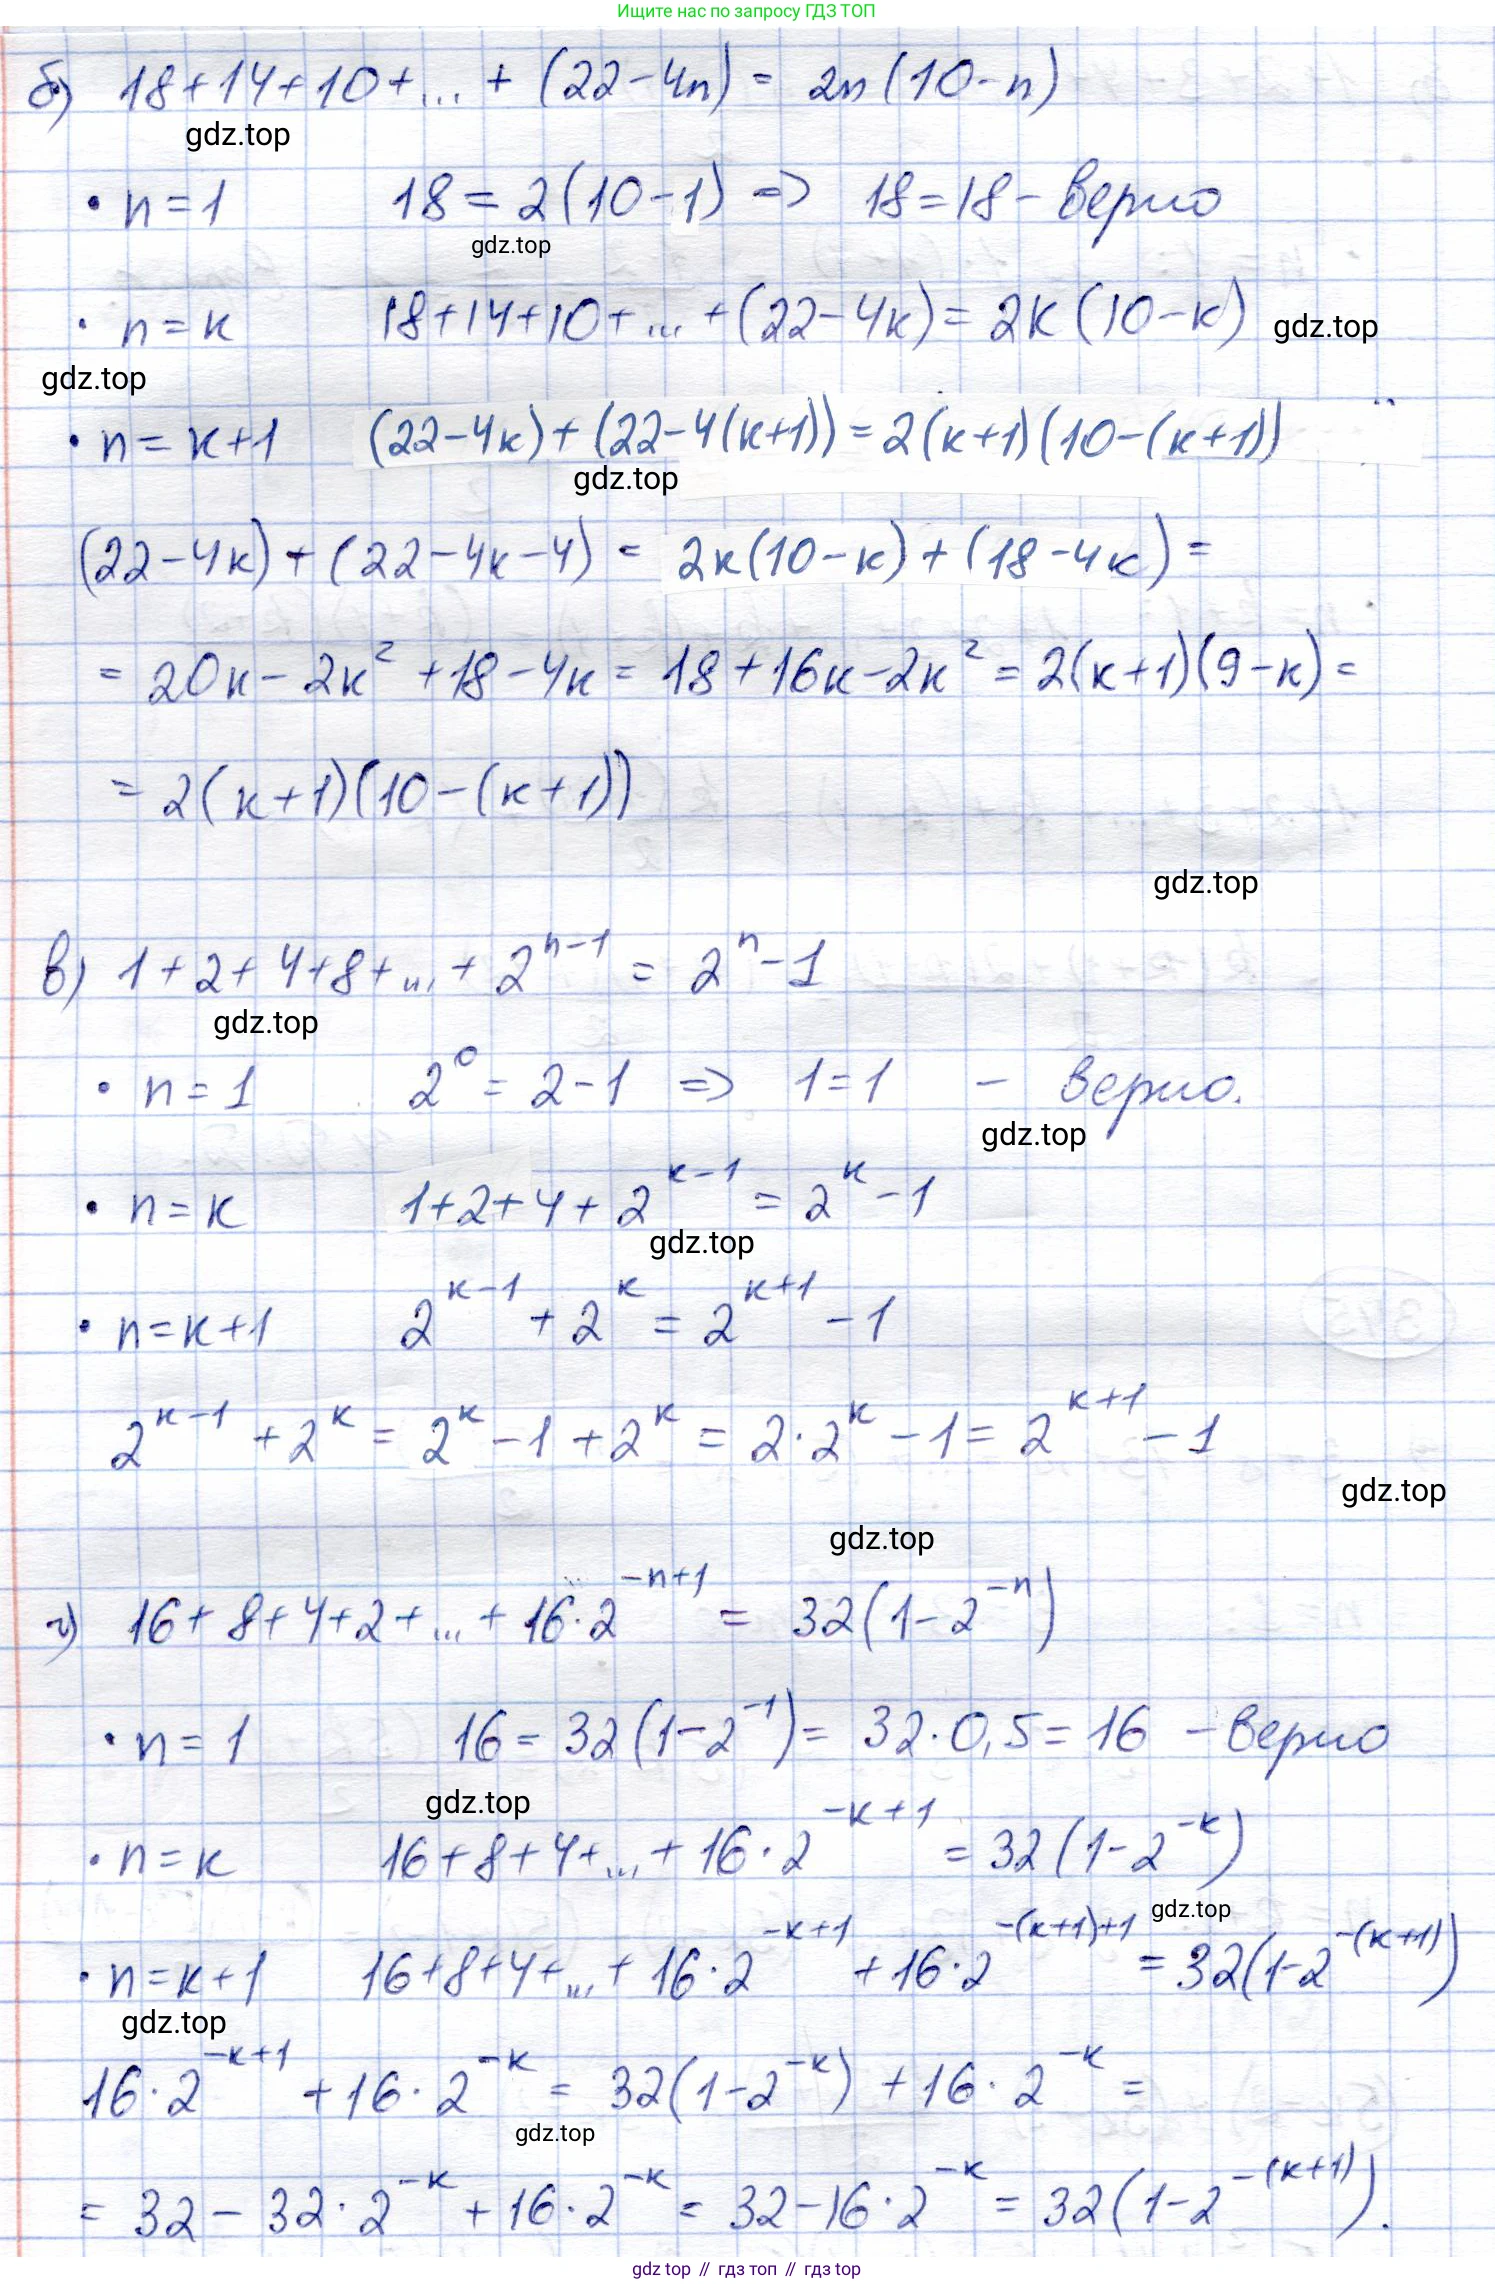 Ищите нас по запросу ГДЗ ТОП
б) 18+14+10+...+(22-4n) = 2n(10-n)
gdz.top
• n=1 18=2(10-1) => 18=18 - верно
gdz.top
• n=к 18+14+10+...+(22-4к)=2к(10-к) gdz.top
gdz.top
• n=к+1 (22-4к)+(22-4(к+1))=2(к+1)(10-(к+1))
gdz.top
(22-4к)+(22-4к-4) = 2к(10-к)+(18-4к) =
= 20к-2к²+18-4к = 18+16к-2к² = 2(к+1)(9-к) =
= 2(к+1)(10-(к+1))
gdz.top
в) 1+2+4+8+...+2^{n-1} = 2^n-1
gdz.top
• n=1 2^0 = 2-1 => 1=1 - верно.
gdz.top
• n=к 1+2+4+2^{к-1} = 2^к-1
gdz.top
• n=к+1 2^{к-1}+2^к = 2^{к+1}-1
2^{к-1}+2^к = 2^к-1+2^к = 2·2^к-1 = 2^{к+1}-1
gdz.top
gdz.top
г) 16+8+4+2+...+16·2^{-n+1} = 32(1-2^{-n})
• n=1 16=32(1-2^{-1})=32·0,5=16 - верно
gdz.top
• n=к 16+8+4+...+16·2^{-к+1} = 32(1-2^{-к})
gdz.top
• n=к+1 16+8+4+...+16·2^{-к+1}+16·2^{-(к+1)+1} = 32(1-2^{-(к+1)})
gdz.top
16·2^{-к+1}+16·2^{-к} = 32(1-2^{-к})+16·2^{-к} =
gdz.top
= 32-32·2^{-к}+16·2^{-к} = 32-16·2^{-к} = 32(1-2^{-(к+1)}).
gdz top // гдз топ // гдз top